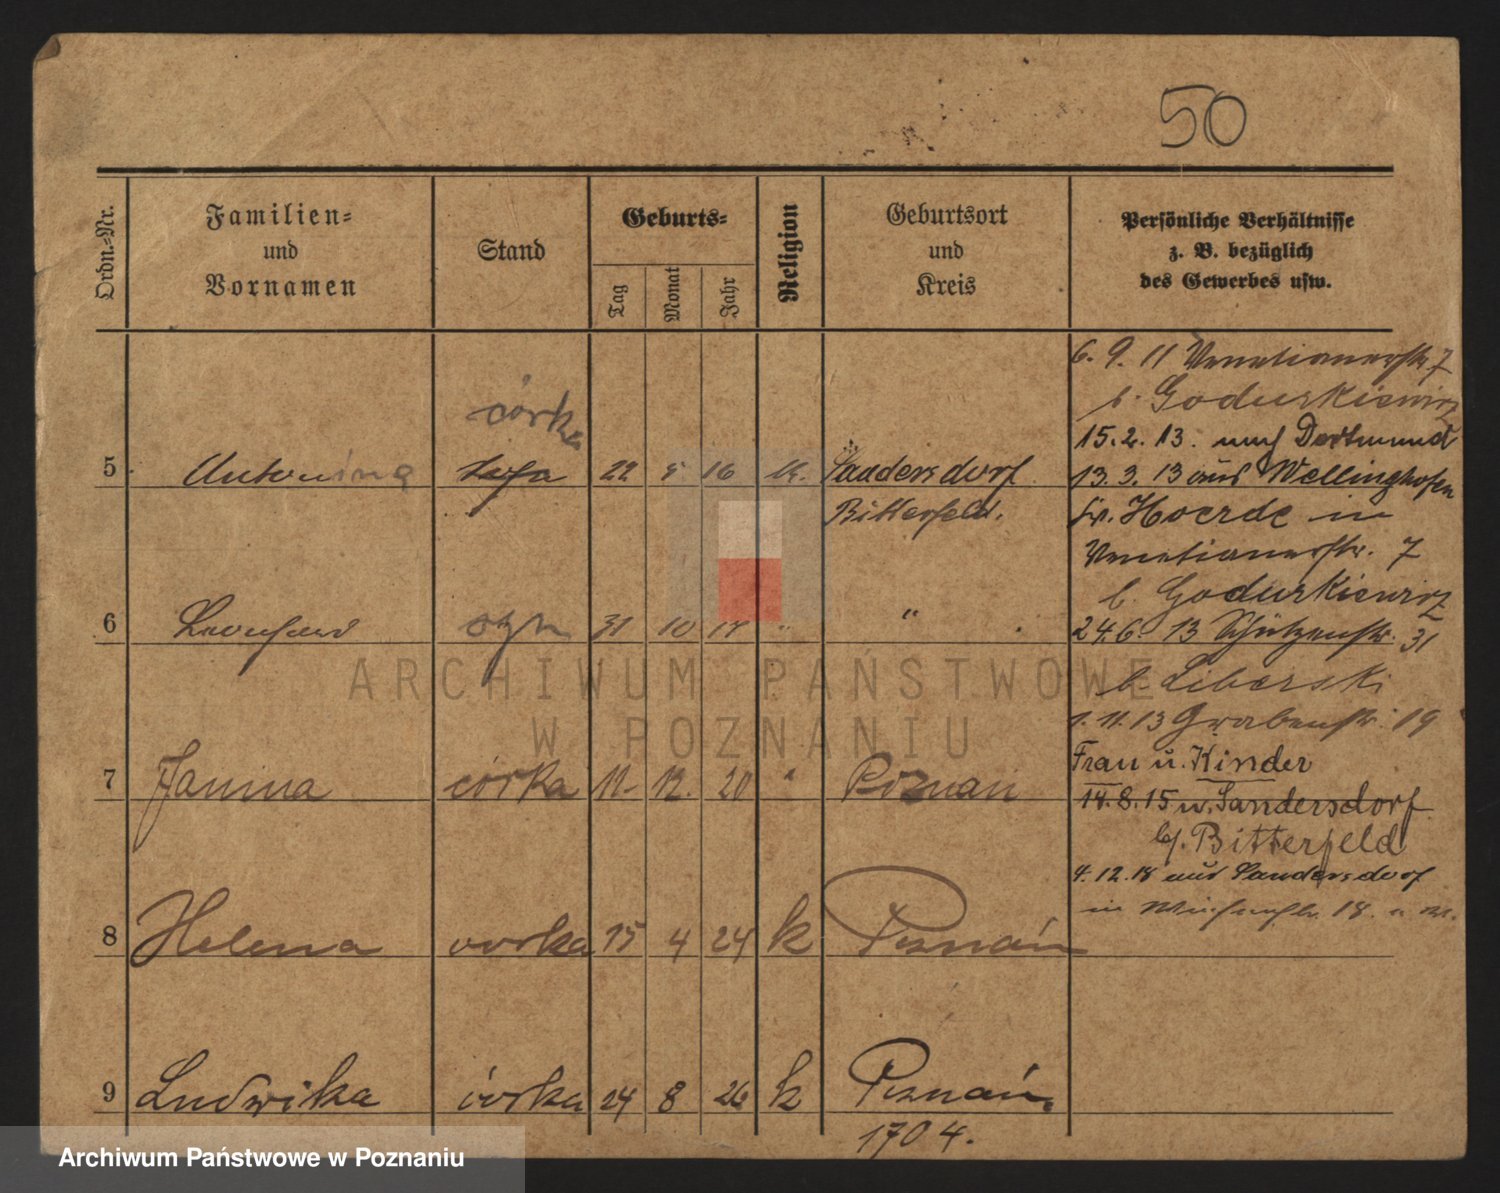 50
Ordn.=Nr.
Familien=
und
Vornamen
Stand
Geburts=
Tag
Monat
Jahr
Religion
Geburtsort
und
Kreis
Persönliche Verhältnisse
z. B. bezüglich
des Gewerbes usw.
5 Antonina córka 22 5 16 k. Sandersdorf
Bitterfeld.
6 Leonhard syn 31 10 17 " "
7 Janina córka 11. 12. 20 " Poznań
8 Helena córka 15 4 24 k Poznań
9 Ludwika córka 24 8 26 k Poznań
1704.
6. 9. 11 Venetianerstr. 7
b. Godurkiewicz
15. 2. 13. nach Dortmund
13. 3. 13 aus Wellinghofen
Kr. Hoerde in
Venetianerstr. 7
b. Godurkiewicz
24. 6. 13 Schützenstr. 31
b. Liberski
1. 11. 13 Grabenstr. 19
Frau u. Kinder
14. 8. 15 n. Sandersdorf
b/. Bitterfeld
4. 12. 18 aus Sandersdorf
in 18.
ARCHIWUM PAŃSTWOWE
W POZNANIU
Archiwum Państwowe w Poznaniu